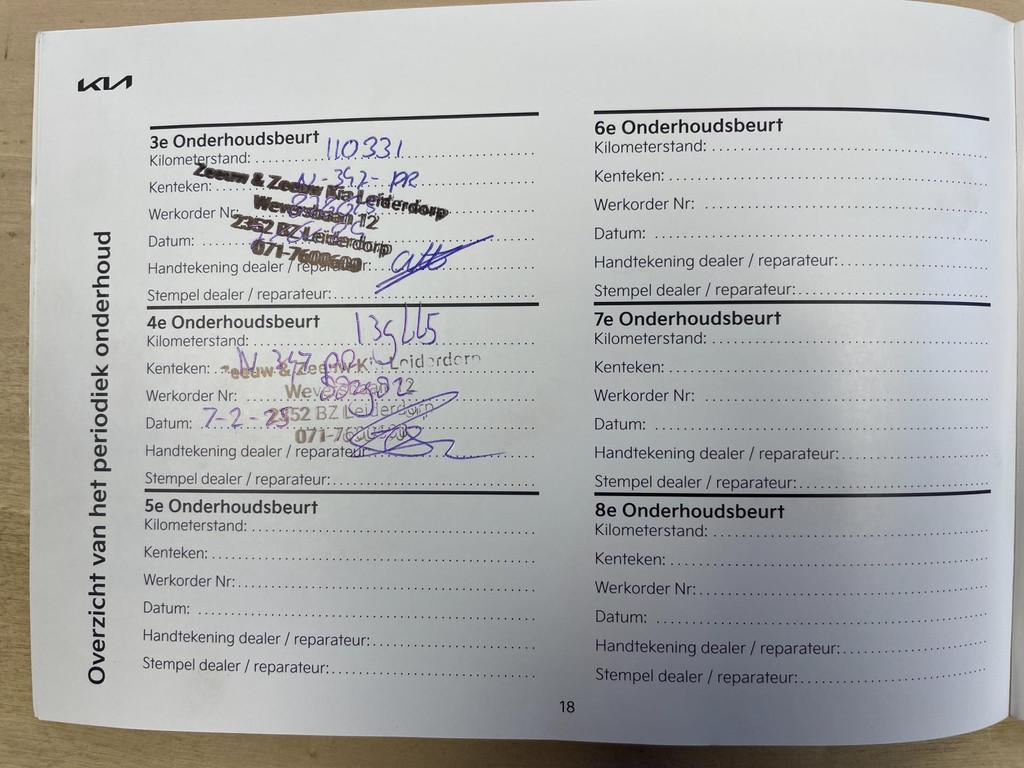 KIA
Overzicht van het periodiek onderhoud
3e Onderhoudsbeurt
Kilometerstand: 110331
Kenteken: N-342-PR
Zeeuw & Zeeuw Kia Leiderdorp
Werkorder Nr:
Weversbaan 12
2352 BZ Leiderdorp
Datum:
071-7600600
Handtekening dealer / reparateur:
Stempel dealer / reparateur:
4e Onderhoudsbeurt
Kilometerstand:
Kenteken: N
Zeeuw & Zeeuw Kia Leiderdorp
Werkorder Nr:
Weversbaan 12
Datum: 7-2-23
2352 BZ Leiderdorp
071-7600600
Handtekening dealer / reparateur:
Stempel dealer / reparateur:
5e Onderhoudsbeurt
Kilometerstand:
Kenteken:
Werkorder Nr:
Datum:
Handtekening dealer / reparateur:
Stempel dealer / reparateur:
6e Onderhoudsbeurt
Kilometerstand:
Kenteken:
Werkorder Nr:
Datum:
Handtekening dealer / reparateur:
Stempel dealer / reparateur:
7e Onderhoudsbeurt
Kilometerstand:
Kenteken:
Werkorder Nr:
Datum:
Handtekening dealer / reparateur:
Stempel dealer / reparateur:
8e Onderhoudsbeurt
Kilometerstand:
Kenteken:
Werkorder Nr:
Datum:
Handtekening dealer / reparateur:
Stempel dealer / reparateur:
18